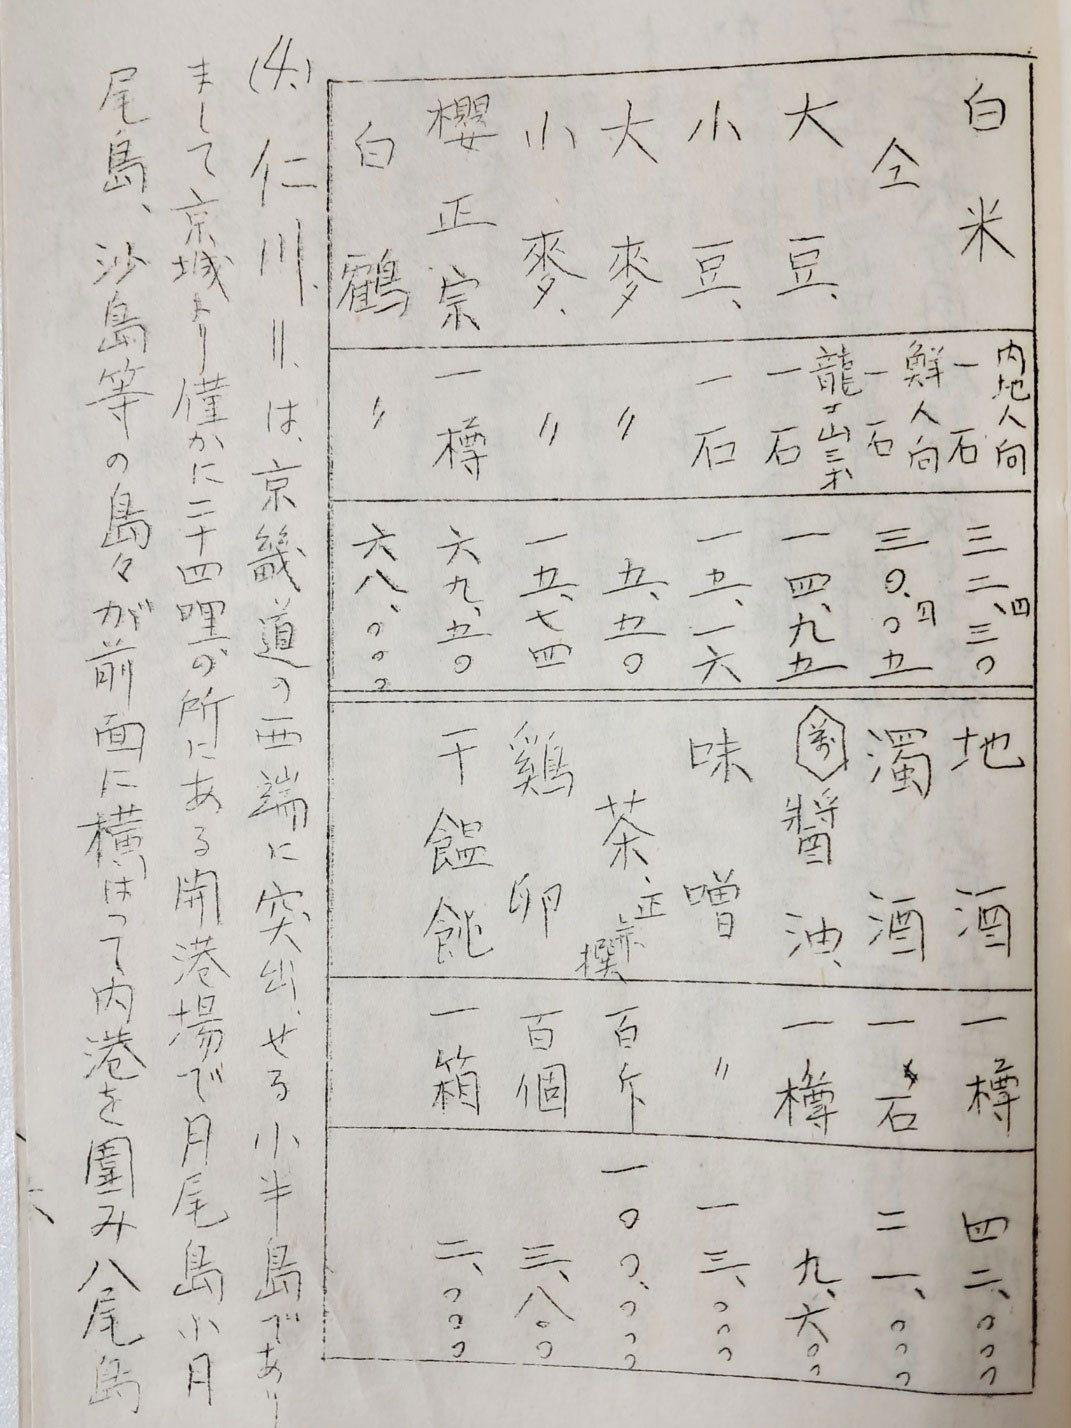 白米 内地人向 一石 三二、四三〇
仝 鮮人向 一石 三〇、四〇五
大豆、 龍山 一石 一四、九五
小豆、 一石 一五、一六
大麥 〃 五、五〇
小麥、 〃 一五、七四
櫻正宗 一樽 六九、五〇
白鶴 〃 六八、〇〇〇
地酒 一樽 四二、〇〇〇
濁酒 一石 二一、〇〇〇
萬 醬油、 一樽 九、六〇〇
味噌 〃 一三、〇〇〇
茶、正 撰 百斤 一〇〇、〇〇〇
鷄卵 百個 三、八〇〇
干饂飩 一箱 二、〇〇〇
(4、) 仁川、〃、は、京畿道の西端に突出、せる小半島であり
まして京城より僅かに二十四哩の所にある開港場で月尾島小月
尾島、沙島等の島々が前面に横はって内港を圍み八尾島